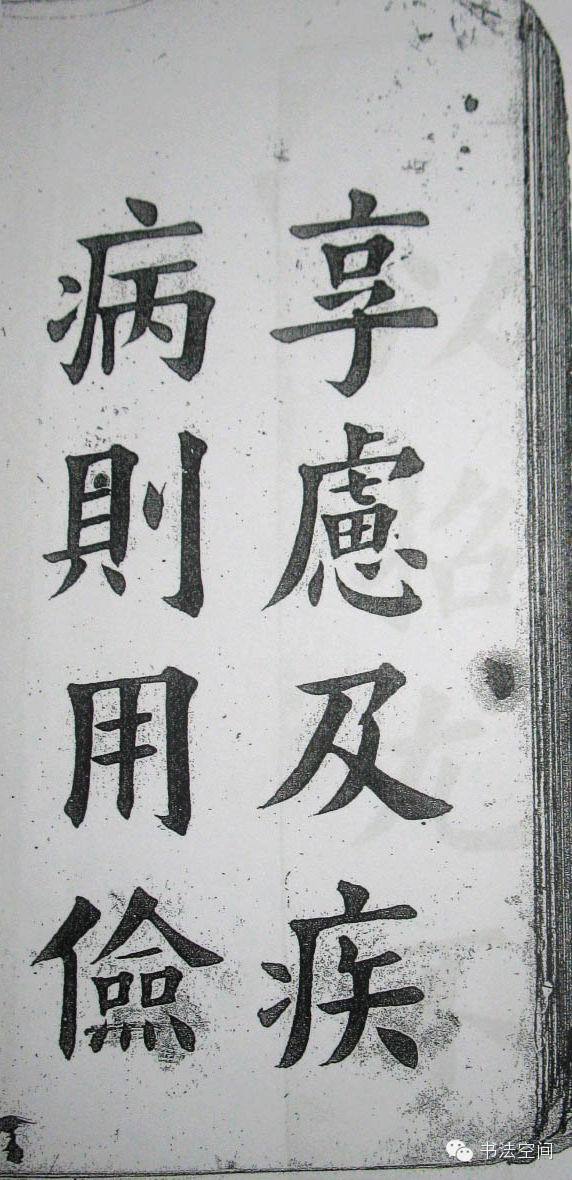 享慮及疾
病則用儉
书法空间